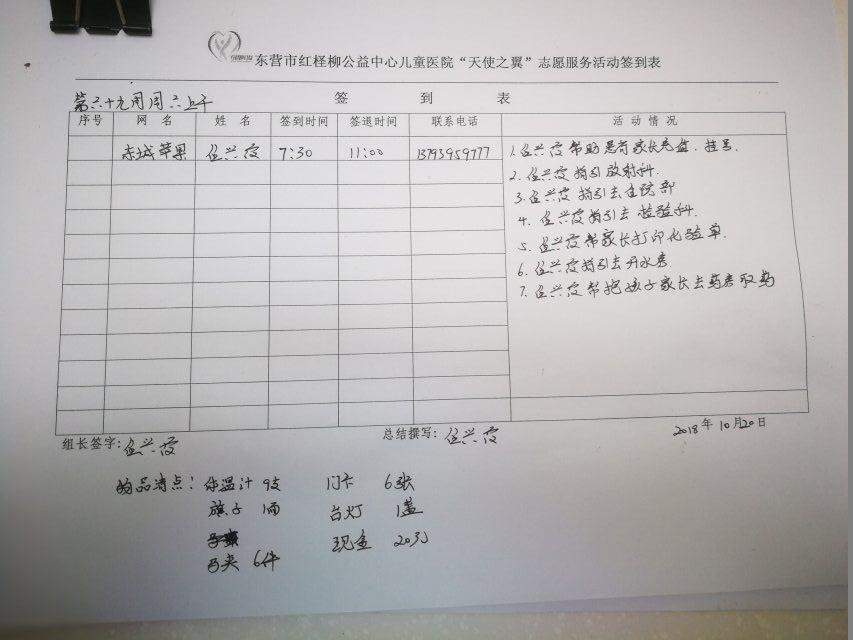 东营市红柽柳公益中心儿童医院“天使之翼”志愿服务活动签到表
签 到 表
第六十九周周六上午
序号 网 名 姓 名 签到时间 签退时间 联系电话 活 动 情 况
赤城苹果 任兴霞 7:30 11:00 13793959777
1. 任兴霞帮助患者家长充值、挂号.
2. 任兴霞指引放射科.
3. 任兴霞指引去住院部
4. 任兴霞指引去检验科.
5. 任兴霞帮家长打印化验单.
6. 任兴霞指引去开水房
7. 任兴霞帮抱孩子家长去药房取药
组长签字:任兴霞 总结撰写:任兴霞 2018年10月20日
物品清点: 体温计 9支 门卡 6张
旗子 1面 台灯 1盏
现金 20元
马夹 6件